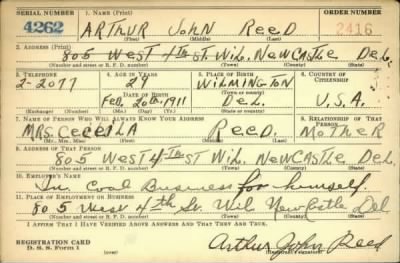 SERIAL NUMBER 1. NAME (Print) ORDER NUMBER
4262 ARTHUR JOHN REED 2416
(First) (Middle) (Last)
2. ADDRESS (Print)
805 WEST 4TH ST. WIL. NEWCASTLE DEL.
(Number and street or R. F. D. number) (Town) (County) (State)
3. TELEPHONE 4. AGE IN YEARS 5. PLACE OF BIRTH 6. COUNTRY OF CITIZENSHIP
2-2077 29 WILMINGTON
DATE OF BIRTH (Town or county)
FEB. 20TH. 1911 DEL. U.S.A.
(Exchange) (Number) (Mo.) (Day) (Yr.) (State or country)
7. NAME OF PERSON WHO WILL ALWAYS KNOW YOUR ADDRESS 8. RELATIONSHIP OF THAT PERSON
MRS. CECELIA REED. MOTHER
(Mr., Mrs., Miss) (First) (Middle) (Last)
9. ADDRESS OF THAT PERSON
805 WEST 4TH ST WIL. NEWCASTLE DEL.
(Number and street or R. F. D. number) (Town) (County) (State)
10. EMPLOYER'S NAME
In Coal Business for himself.
11. PLACE OF EMPLOYMENT OR BUSINESS
805 West 4th St. Wil NewCastle Del
(Number and street or R. F. D. number) (Town) (County) (State)
I AFFIRM THAT I HAVE VERIFIED ABOVE ANSWERS AND THAT THEY ARE TRUE.
REGISTRATION CARD Arthur John Reed
D. S. S. Form 1 (Registrant's signature)